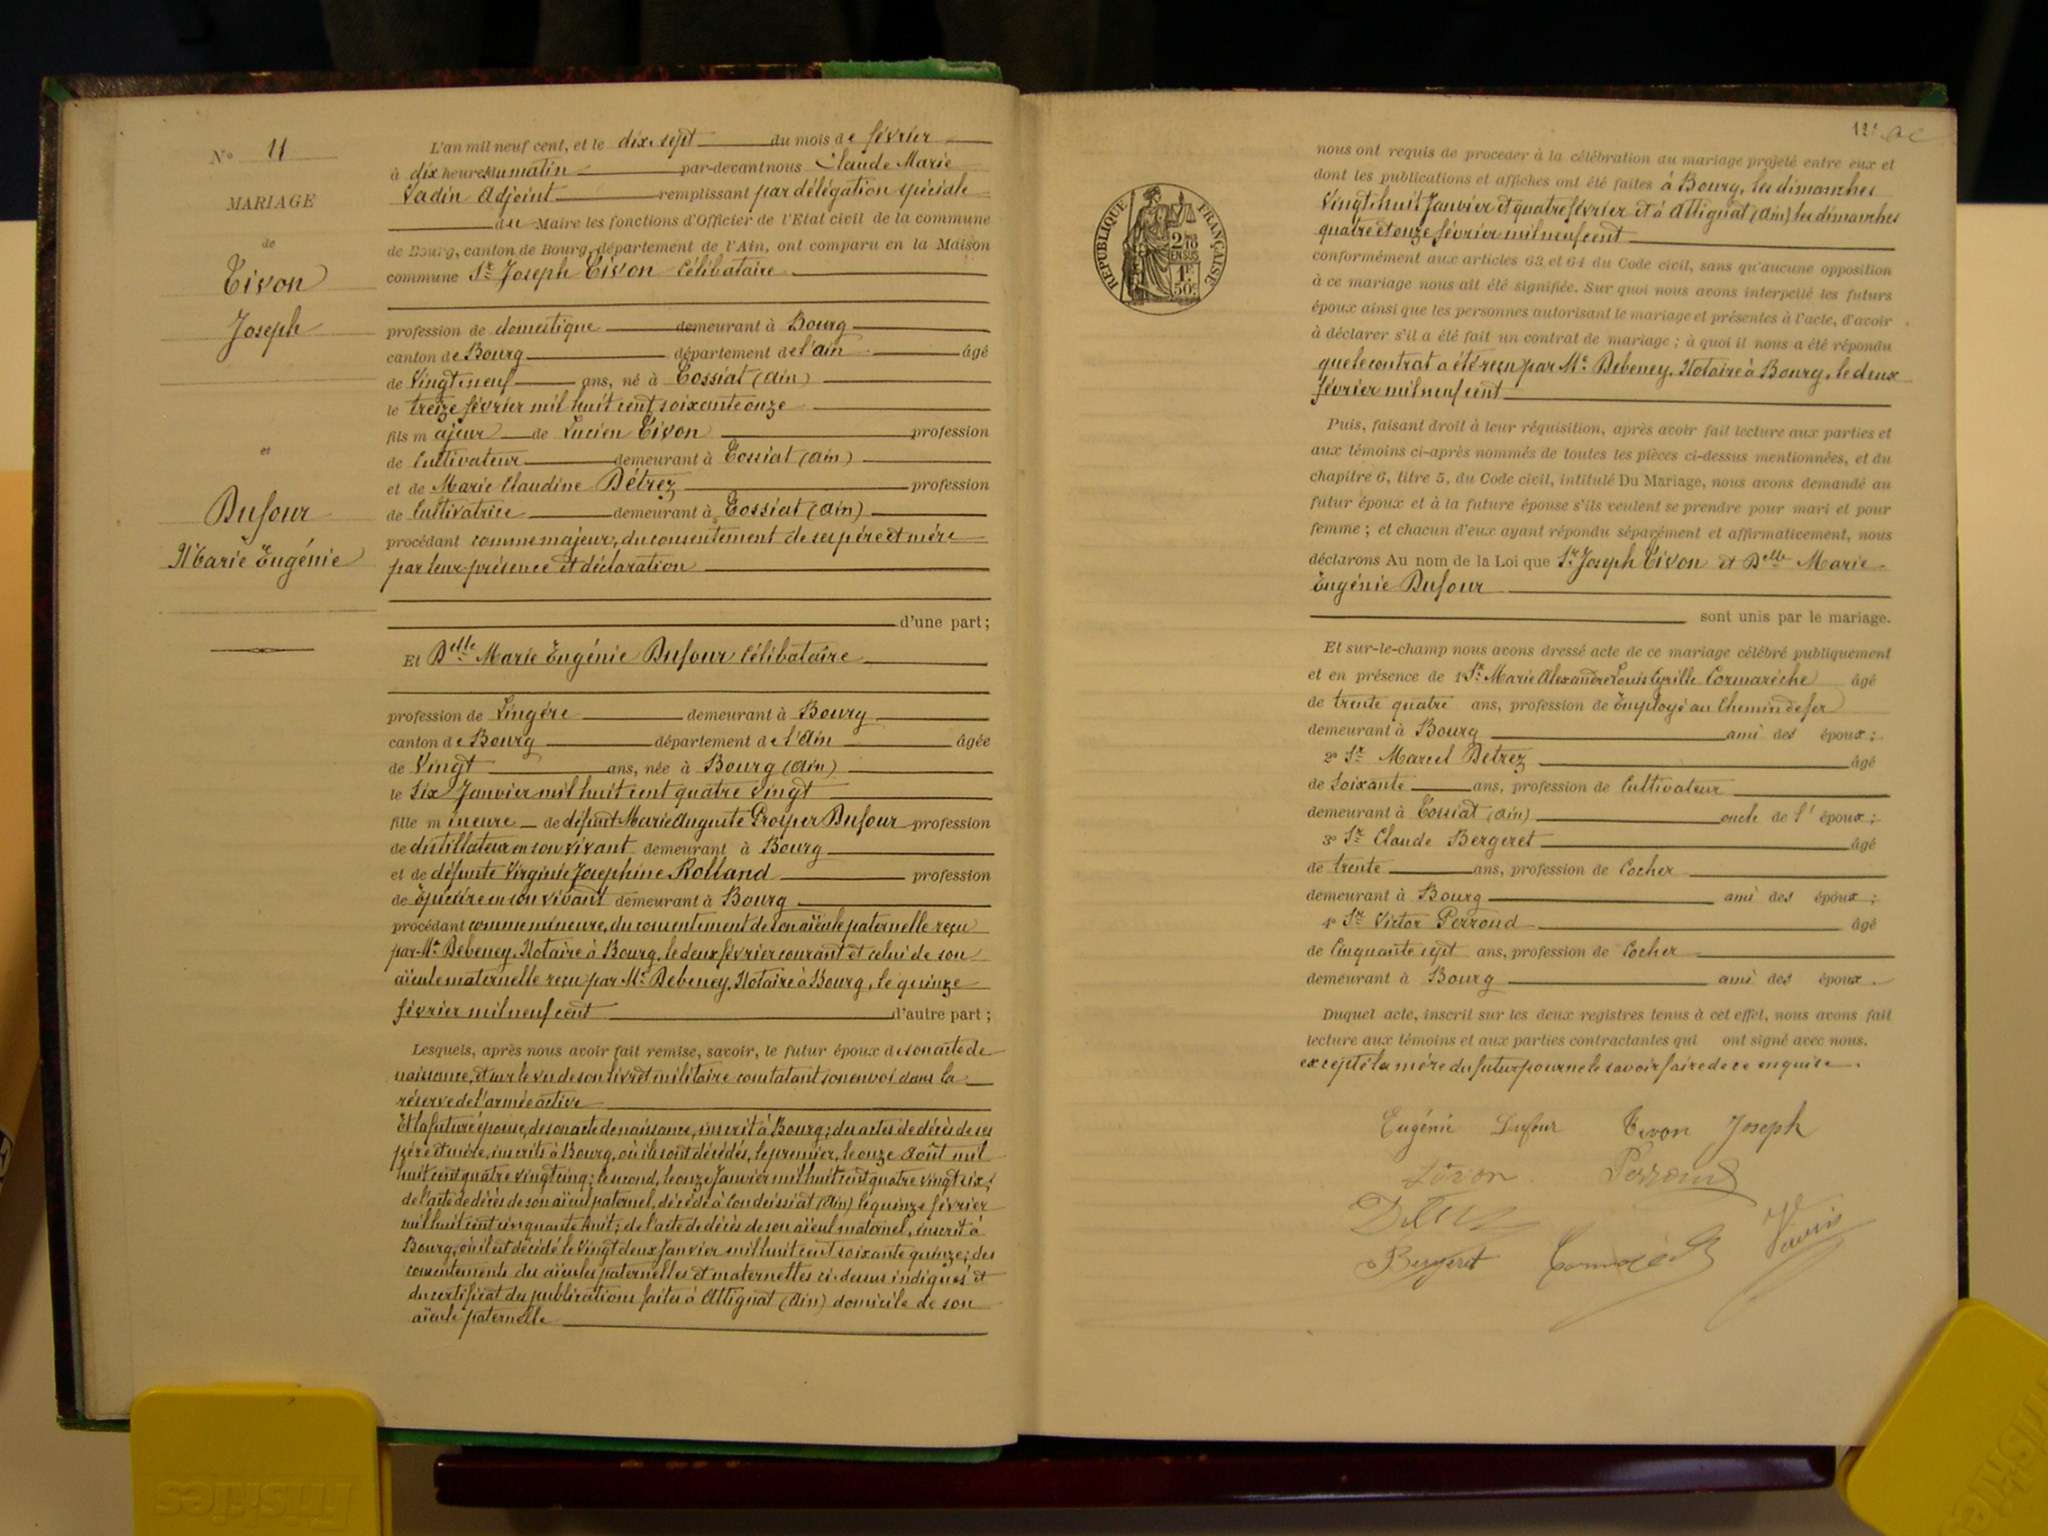 N° 11
MARIAGE
de
Tivon
Joseph
et
Dufour
Marie Eugénie
L'an mil neuf cent, et le dix sept du mois de février
à dix heures du matin par-devant nous Claude Marie
Vadin Adjoint remplissant par délégation spéciale
du Maire les fonctions d'Officier de l'Etat civil de la commune
de Bourg, canton de Bourg, département de l'Ain, ont comparu en la Maison
commune Sr Joseph Tivon Célibataire
profession de domestique demeurant à Bourg
canton de Bourg département de l'ain âgé
de Vingt neuf ans, né à Tossiat (Ain)
le treize février mil huit cent soixante onze
fils majeur de Lucien Tivon profession
de Cultivateur demeurant à Tossiat (Ain)
et de Marie Claudine Détrez profession
de Cultivatrice demeurant à Tossiat (Ain)
procédant comme majeur, du consentement de ses père et mère
par leur présence et déclaration
d'une part;
Et Delle Marie Eugénie Dufour Célibataire
profession de Lingère demeurant à Bourg
canton de Bourg département de l'Ain âgée
de Vingt ans, née à Bourg (Ain)
le Six Janvier mil huit cent quatre vingt
fille mineure de défunt Marie Auguste Prosper Dufour profession
de distillateur en son vivant demeurant à Bourg
et de défunte Virginie Joséphine Rolland profession
de épicière en son vivant demeurant à Bourg
procédant comme mineure, du consentement de son aïeule paternelle reçu
par Me Debeney, Notaire à Bourg, le deux février courant et celui de son
aïeule maternelle reçu par Me Debeney, Notaire à Bourg, le quinze
février mil neuf cent d'autre part;
Lesquels, après nous avoir fait remise, savoir, le futur époux de son acte de
naissance, et sur le vu de son livret militaire constatant son envoi dans la
réserve de l'armée active
Et la future épouse, de son acte de naissance, inscrit à Bourg; des actes de décès de ses
père et mère, inscrits à Bourg, où ils sont décédés, le premier, le onze Août mil
huit cent quatre vingt cinq; le second, le onze Janvier mil huit cent quatre vingt six;
de l'acte de décès de son aïeul paternel, décédé à Condeissiat (Ain) le quinze février
mil huit cent cinquante huit; de l'acte de décès de son aïeul maternel, inscrit à
Bourg, où il est décédé le Vingt deux Janvier mil huit cent soixante quinze; des
consentements des aïeules paternelles et maternelles ci-dessus indiqués et
du certificat des publications faites à Attignat (Ain) domicile de son
aïeule paternelle
REPUBLIQUE FRANÇAISE
2 10mes
EN SUS
1F
50c
nous ont requis de procéder à la célébration du mariage projeté entre eux et
dont les publications et affiches ont été faites à Bourg, les dimanches
Vingt huit Janvier et quatre février et à Attignat (Ain) les dimanches
quatre et onze février mil neuf cent
conformément aux articles 63 et 64 du Code civil, sans qu'aucune opposition
à ce mariage nous ait été signifiée. Sur quoi nous avons interpellé les futurs
époux ainsi que les personnes autorisant le mariage et présentes à l'acte, d'avoir
à déclarer s'il a été fait un contrat de mariage; à quoi il nous a été répondu
que le contrat a été reçu par Me Debeney, Notaire à Bourg, le deux
février mil neuf cent
Puis, faisant droit à leur réquisition, après avoir fait lecture aux parties et
aux témoins ci-après nommés de toutes les pièces ci-dessus mentionnées, et du
chapitre 6, titre 5, du Code civil, intitulé Du Mariage, nous avons demandé au
futur époux et à la future épouse s'ils veulent se prendre pour mari et pour
femme; et chacun d'eux ayant répondu séparément et affirmativement, nous
déclarons Au nom de la Loi que Sr Joseph Tivon et Delle Marie
Eugénie Dufour
sont unis par le mariage.
Et sur-le-champ nous avons dressé acte de ce mariage célébré publiquement
et en présence de 1° Sr Marie Alexandre Louis Cyrille Cormarèche âgé
de trente quatre ans, profession de Employé au Chemin de fer
demeurant à Bourg ami des époux;
2° Sr Marcel Detrez âgé
de Soixante ans, profession de Cultivateur
demeurant à Tossiat (Ain) oncle de l'époux;
3° Sr Claude Bergeret âgé
de trente ans, profession de Cocher
demeurant à Bourg ami des époux;
4° Sr Victor Perroud âgé
de Cinquante sept ans, profession de Cocher
demeurant à Bourg ami des époux.
Duquel acte, inscrit sur les deux registres tenus à cet effet, nous avons fait
lecture aux témoins et aux parties contractantes qui ont signé avec nous.
excepté la mère du futur pour ne le savoir faire de ce enquise.
Eugénie Dufour Tivon Joseph
Tivon Perroud
Bergeret